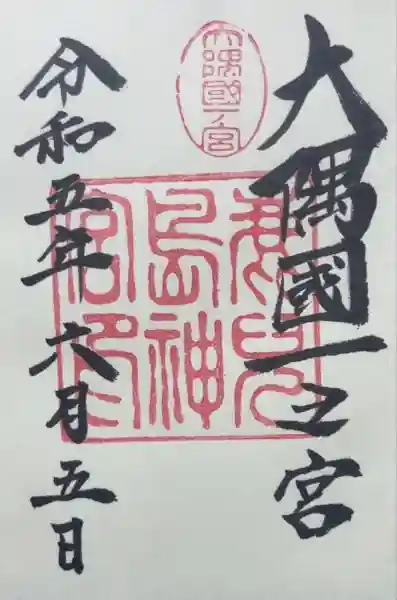 大隅國一之宮
大隅國一宮
鹿兒島神宮印
令和五年六月五日